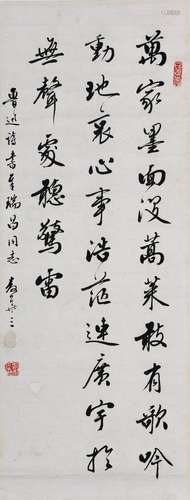 萬家墨面沒蒿萊敢有歌吟
動地哀心事浩茫連廣宇於
無聲處聽驚雷
魯迅詩書呈瑞昌同志 麥華三